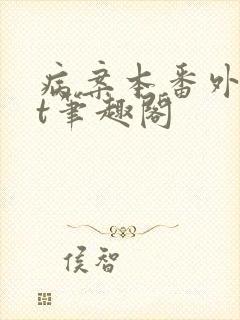 病案本番外
t笔趣阁
侯智